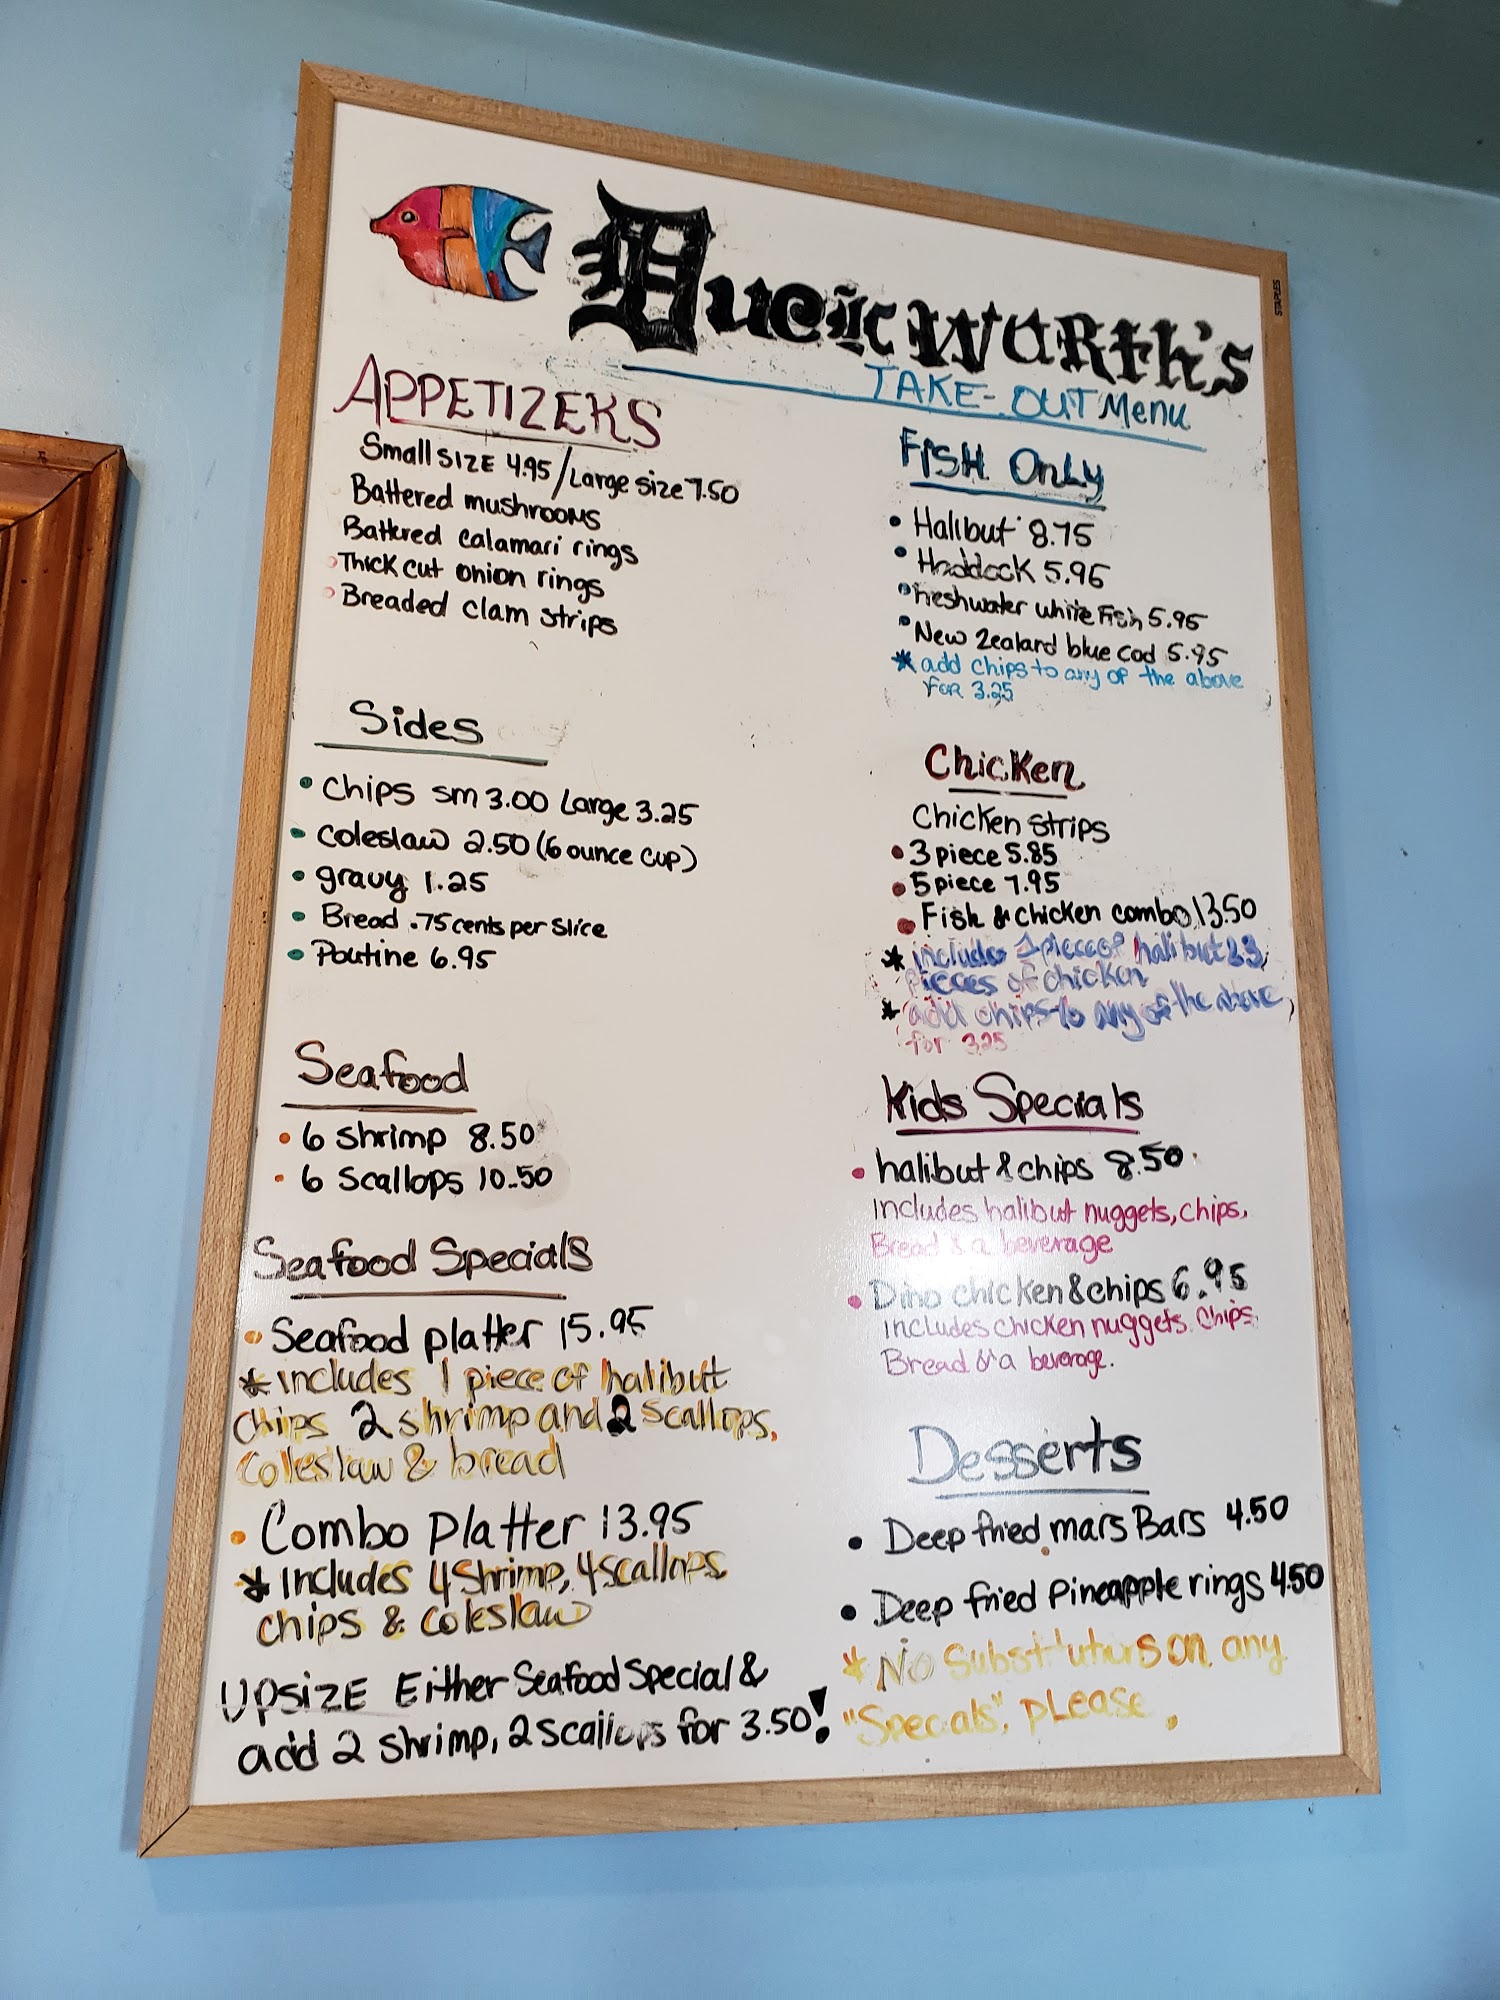 Duckworth's
TAKE-OUT Menu
APPETIZERS
Small SIZE 4.95/Large size 7.50
Battered mushrooms
Battered calamari rings
Thick cut onion rings
Breaded clam strips
Sides
Chips sm 3.00 Large 3.25
Coleslaw 2.50 (6 ounce cup)
gravy 1.25
Bread .75 cents per slice
Poutine 6.95
Seafood
6 shrimp 8.50
6 Scallops 10.50
Seafood Specials
Seafood platter 15.95
*includes 1 piece of halibut
chips 2 shrimp and 2 scallops,
Coleslaw & bread
Combo Platter 13.95
*includes 4 Shrimp, 4 scallops,
chips & coleslaw
UPSIZE Either Seafood Special &
add 2 shrimp, 2 scallops for 3.50!
FISH Only
• Halibut 8.75
• Haddock 5.95
• freshwater white fish 5.95
• New Zealand blue Cod 5.95
* add chips to any of the above
for 3.25
Chicken
Chicken strips
• 3 piece 5.85
• 5 piece 7.95
• Fish & chicken combo 13.50
* includes 1 piece of halibut & 3
pieces of chicken
* add chips to any of the above,
for 3.25
Kids Specials
• halibut & chips 8.50
includes halibut nuggets, chips,
Bread & a beverage
• Dino chicken & chips 6.95
includes chicken nuggets. Chips.
Bread & a beverage.
Desserts
• Deep fried mars Bars 4.50
• Deep fried Pineapple rings 4.50
* No Substitutions on any
"Specials", please.
STAPLES